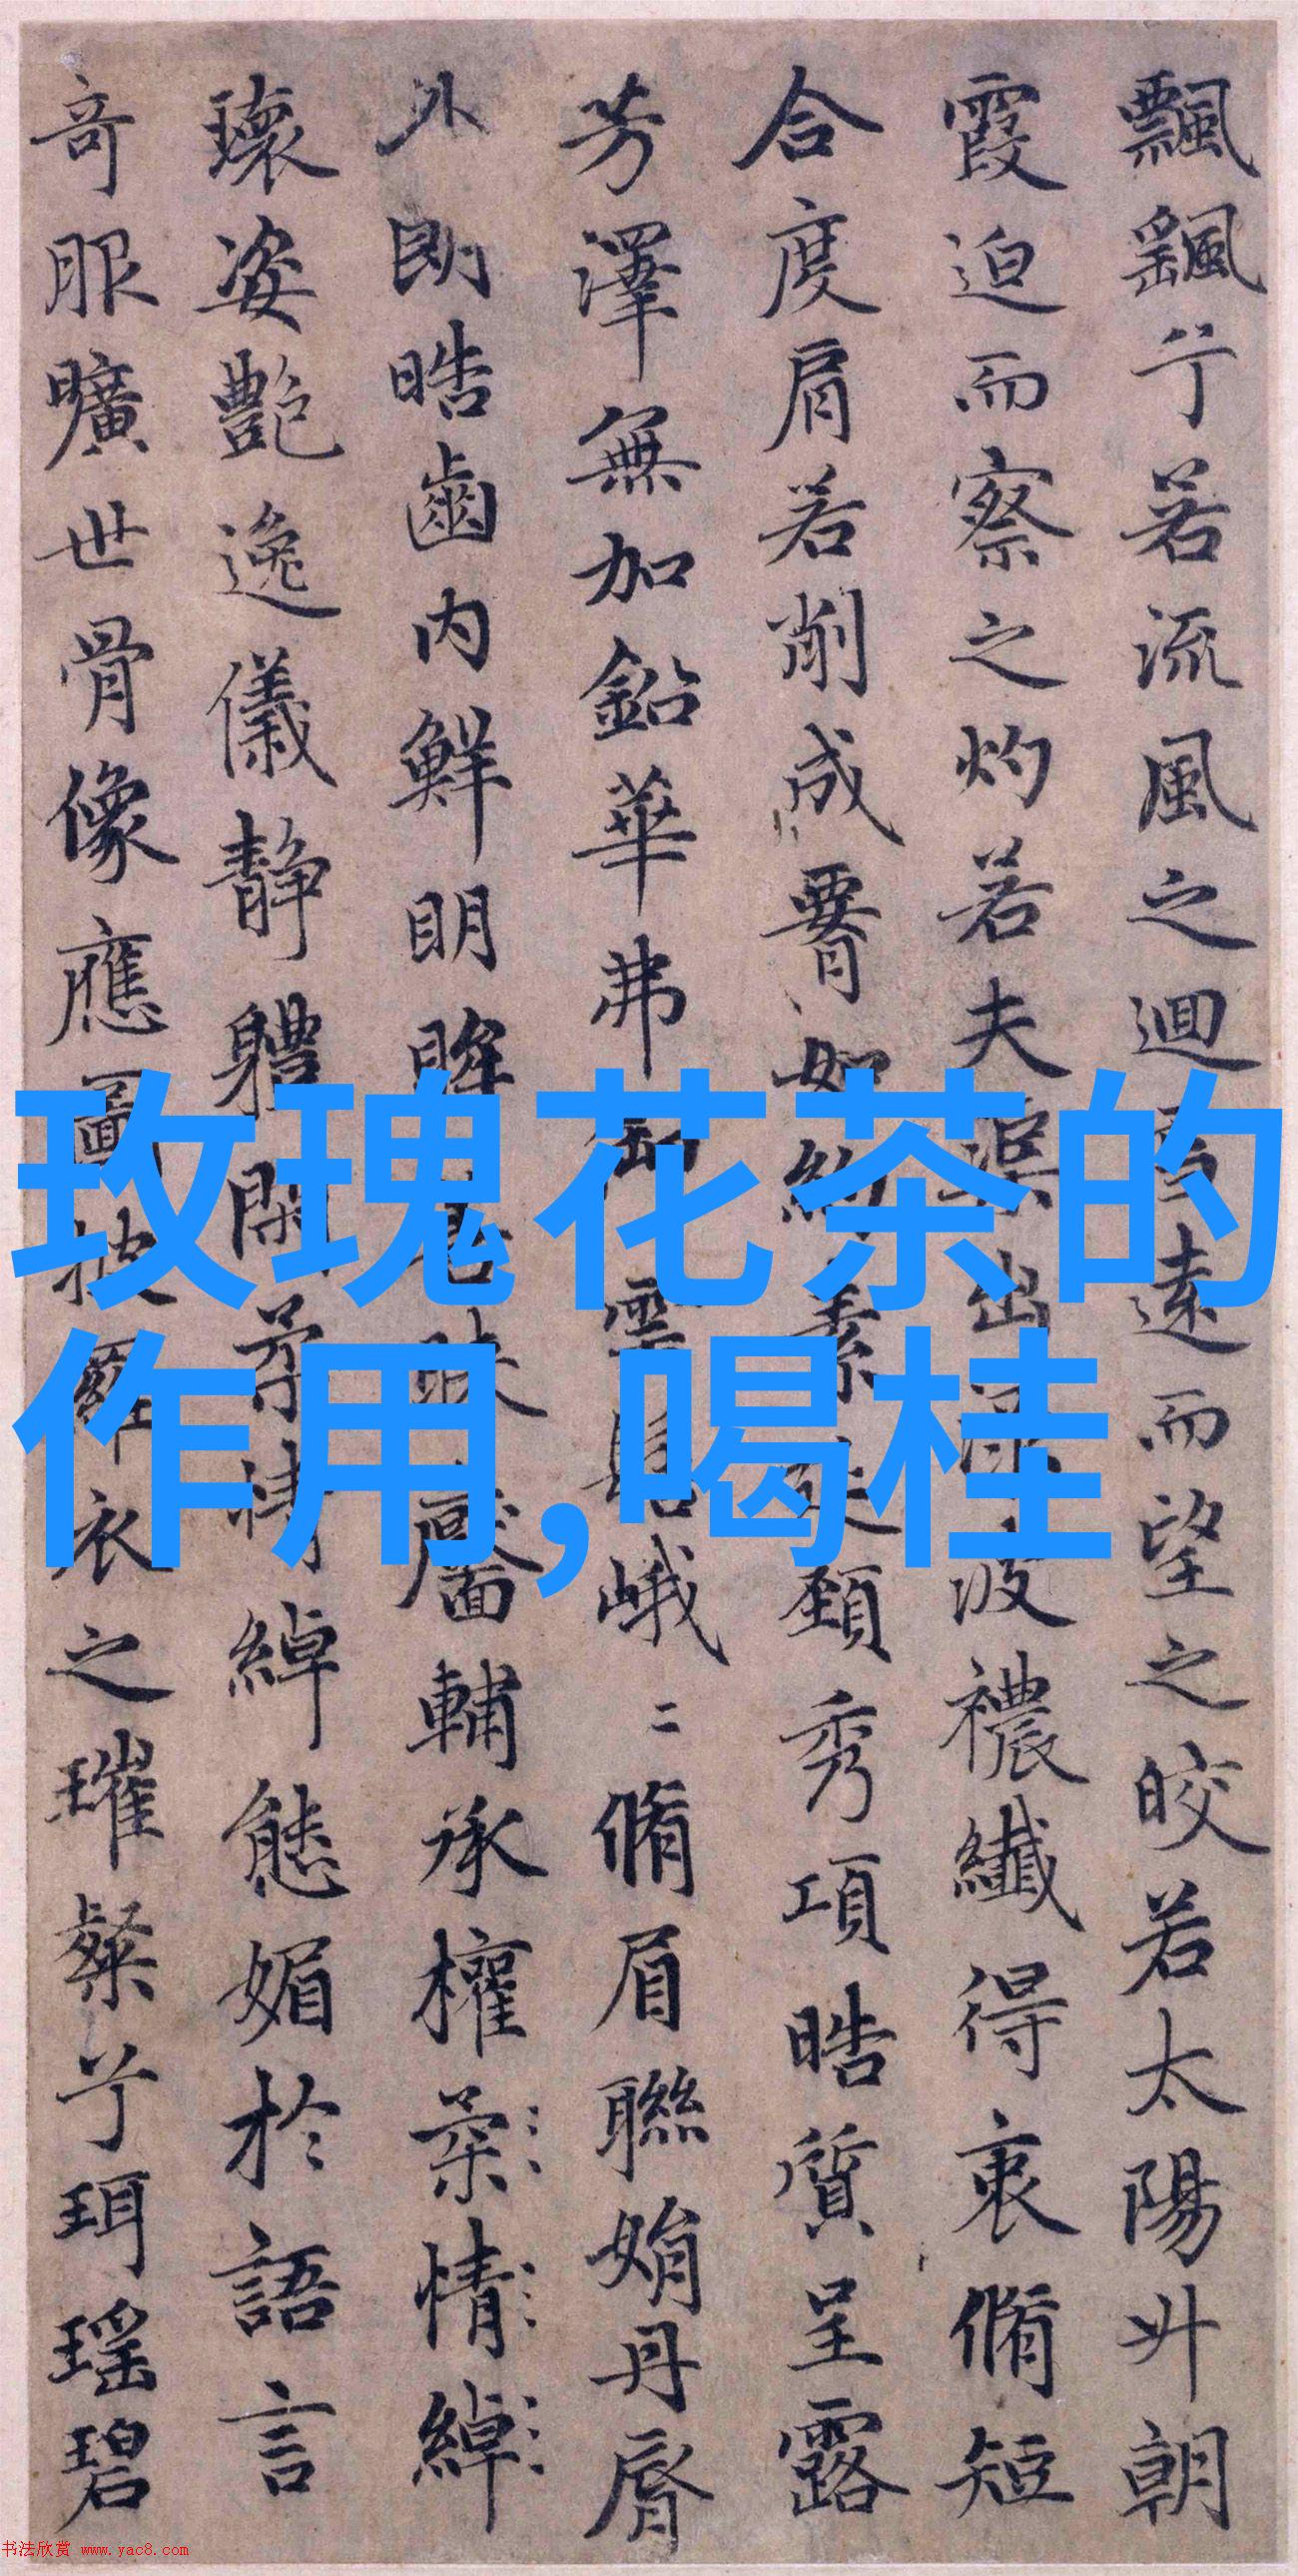 飄飖兮若流風之迴雪遠而望之皎若太陽升朝
霞迫而察之灼若夫渠出淥波襛纖得衷脩短
合度肩若削成䙅如約素延頸秀項皓質呈露
芳澤無加鉛華弗御雲髻峨〻脩眉聯娟丹脣
外朗皓齒内鮮明眸善睞靨輔承權柔情綽
瓌姿艷逸儀静軆閑柔情綽態媚於語言
奇服曠世骨像應圖披羅衣之璀粲兮珥瑶碧
玫瑰花茶的
作用,喝桂
书法欣赏 www.yac8.com